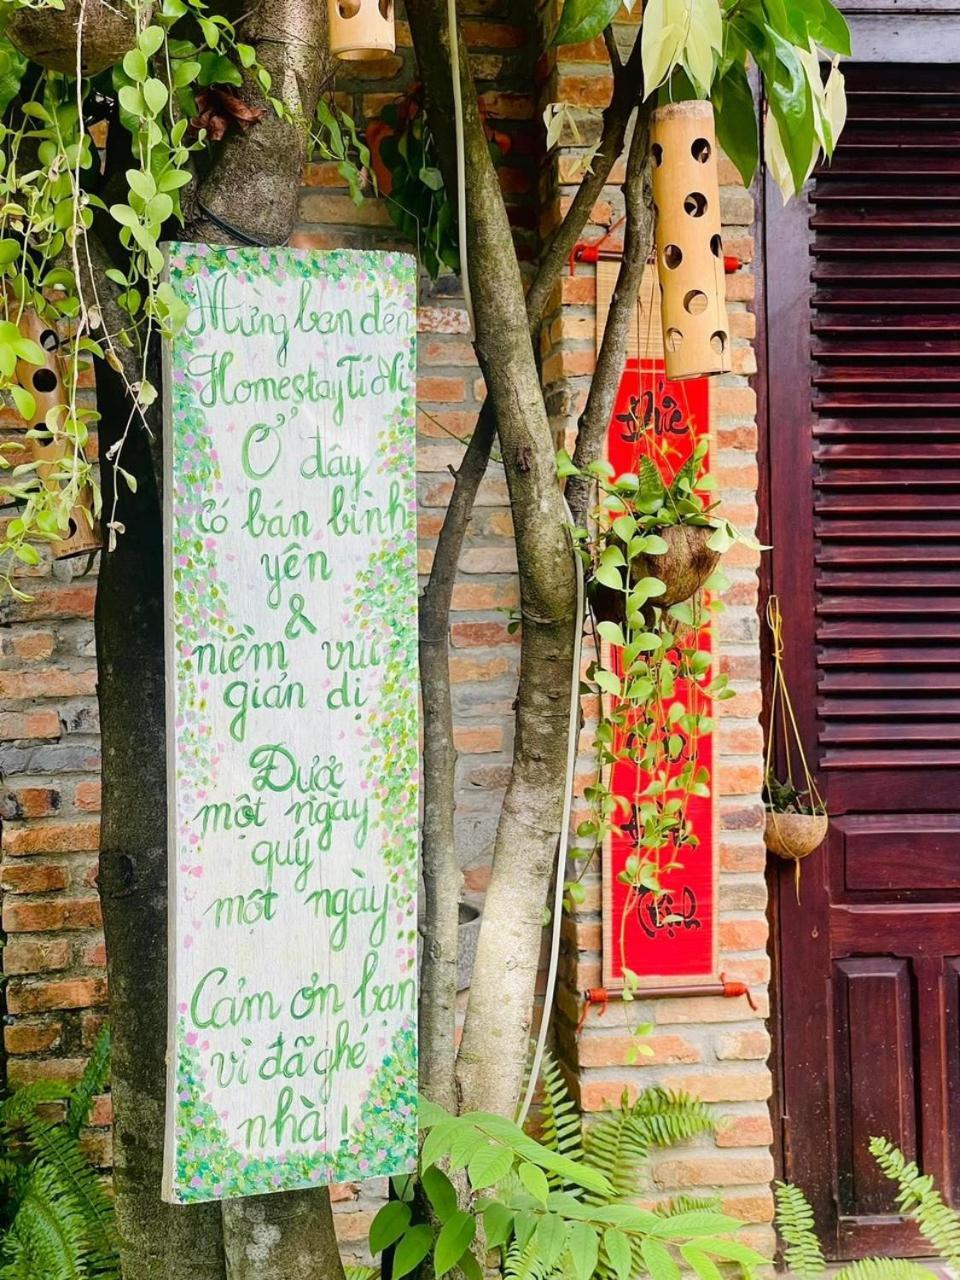 Mừng bạn đến
Homestay Tí Ni
Ở đây
Có bán bình
yên
&
niềm vui
giản dị
Được
một ngày
quý
một ngày
Cảm ơn bạn
vì đã ghé
nhà!
Đức
Thịnh